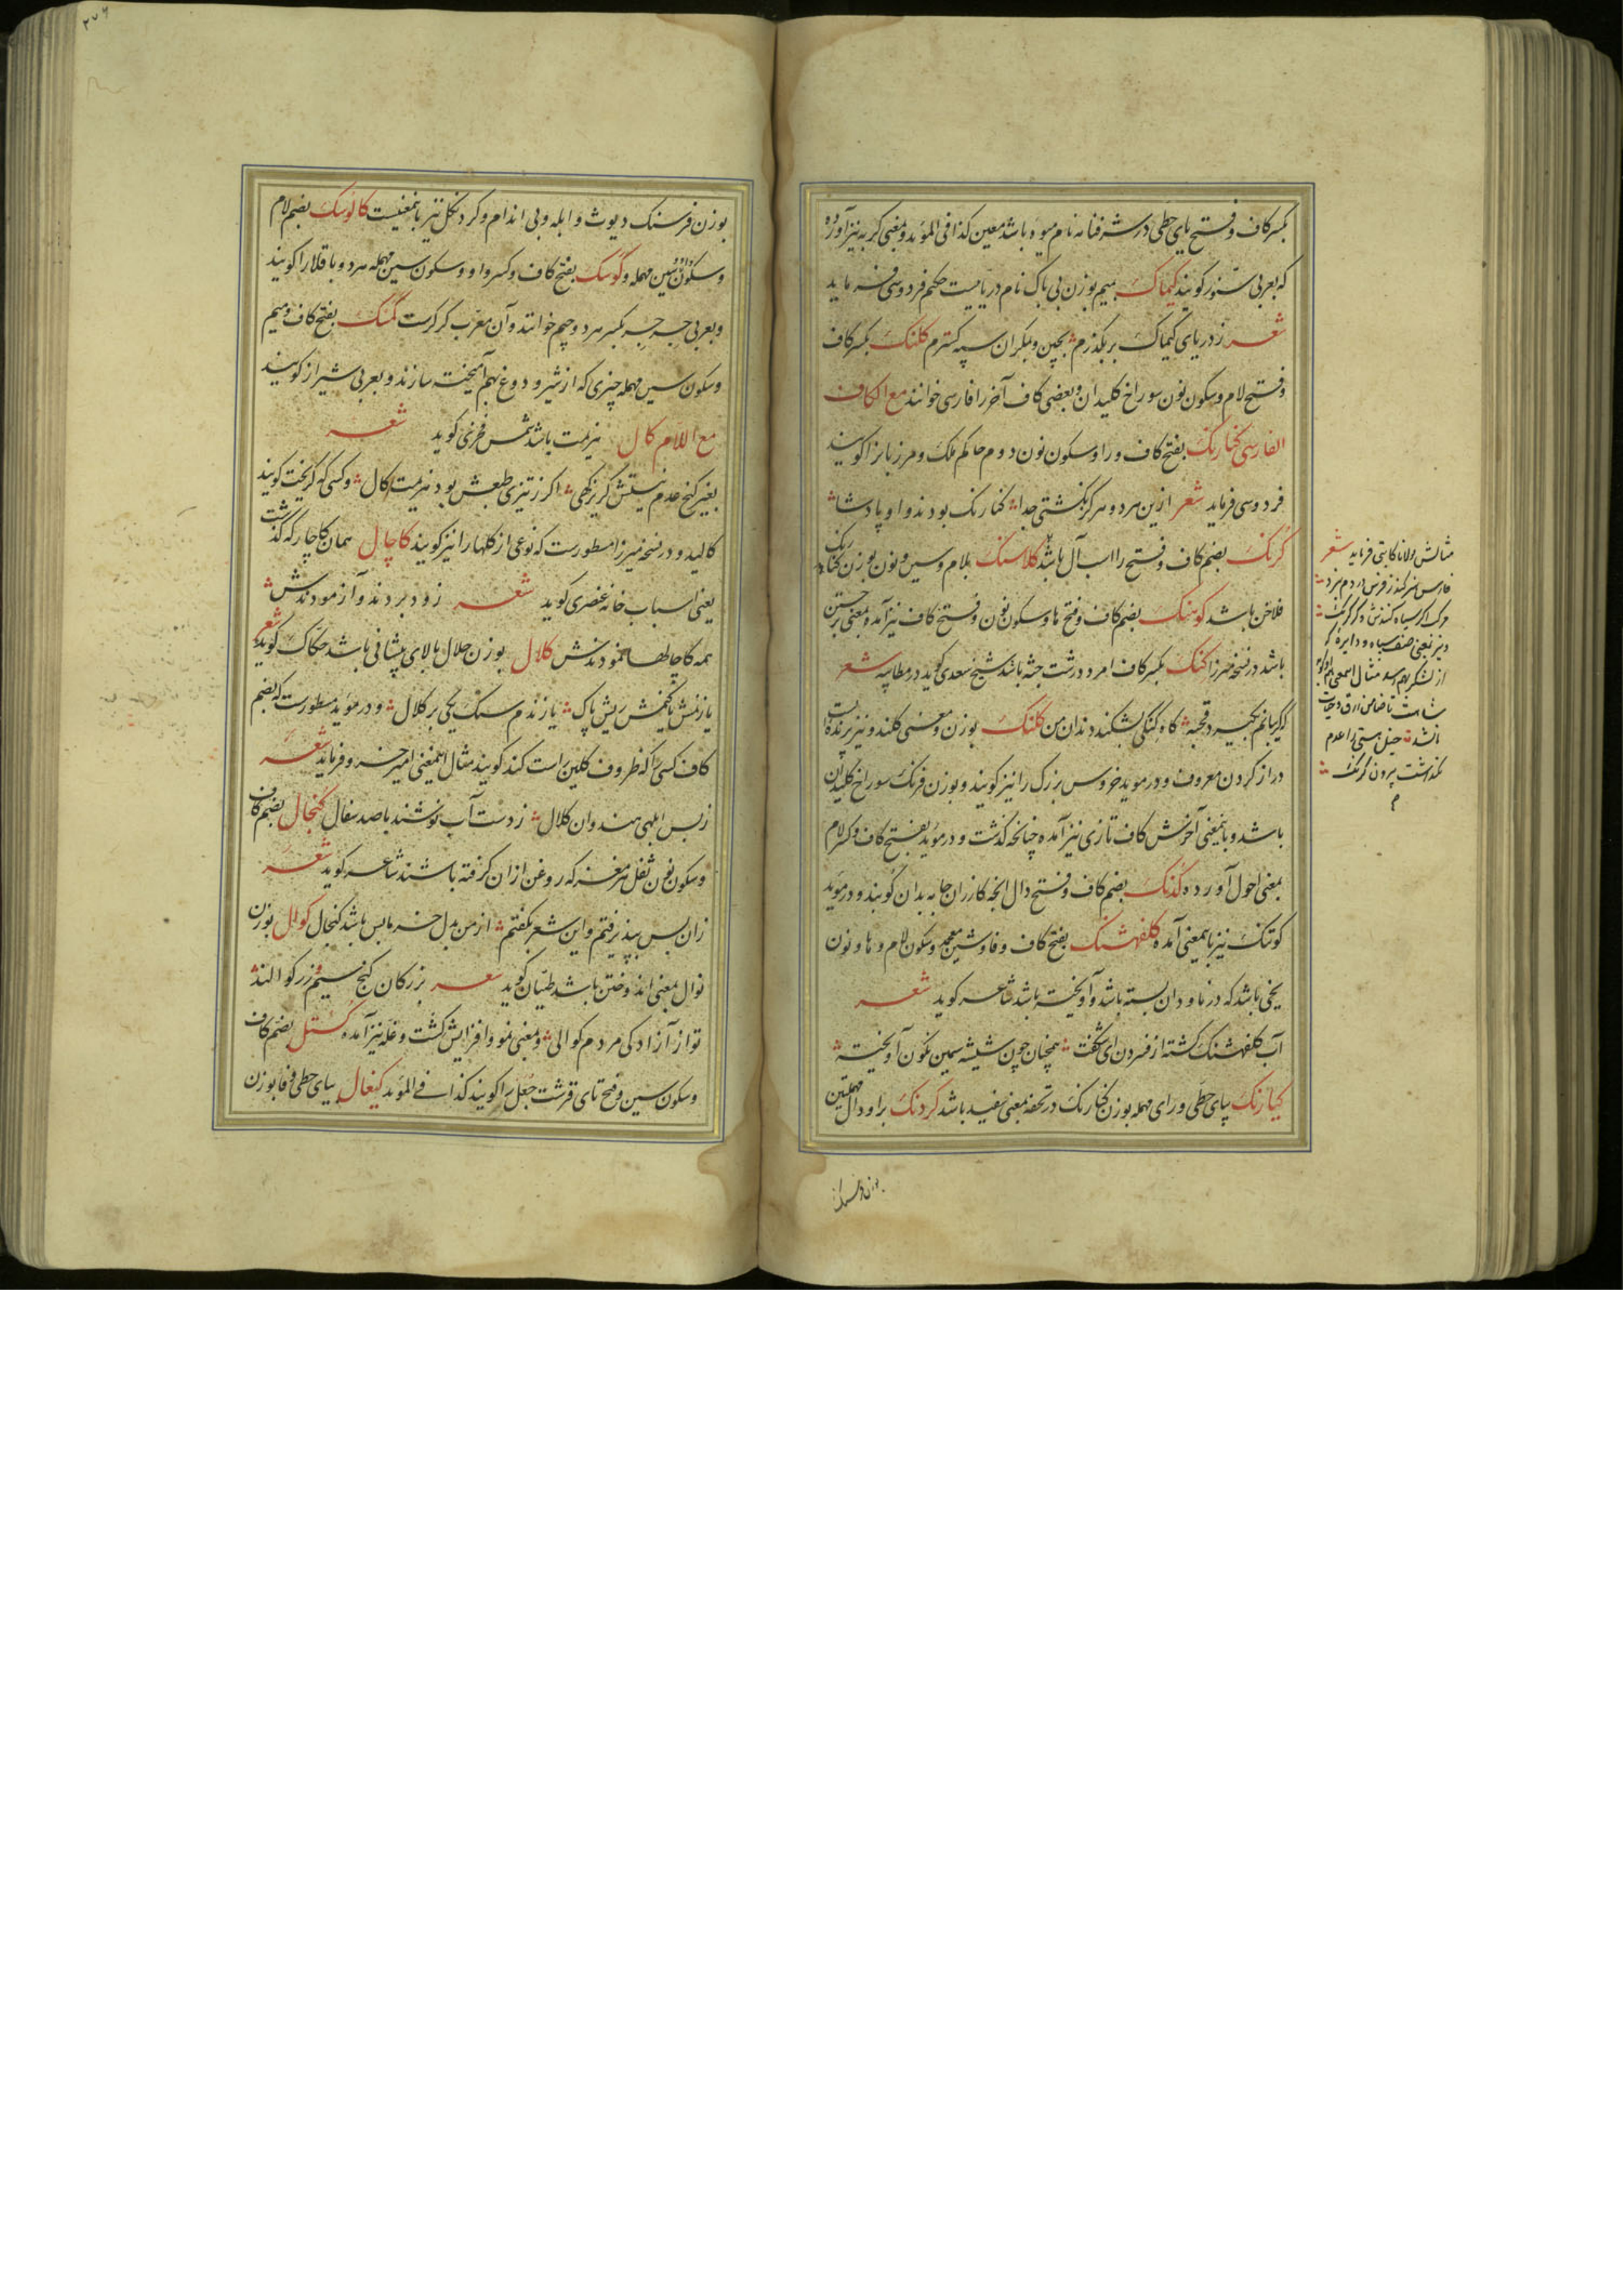 بکسر کاف و فتح یای حطی در شرفنامه نام میوه باشد معین کذا فی المؤید و بمعنی گربه نیز آورده
که بعربی سنور کویند کیماک بمیم بوزن بی باک نام دریاییست حکیم فردوسی فرماید
شعر ز دریای کیماک بر بگذرم بچین و بمکران سپه کسترم کلنک بکسر کاف
و فتح لام و سکون نون سوراخ کلیدان و بعضی کاف آخر را فارسی خوانند مع الکاف
الفارسی کنارنک بفتح کاف و را و سکون نون دوم حاکم ملک و مرزبانرا کویند
فردوسی فرماید شعر ازین هر دو هرکز نکشتی جدا کنارنک بودند و او پادشا
کرنک بضم کاف و فتح را اسب آل باشد کلاسنک بلام و سین و نون بوزن کنارنک
فلاخن باشد کوهنک بضم کاف و فتح ها و سکون نون و فتح کاف نیز آمده بمعنی برجستن
باشد در نسخه میرزا کنک بکسر کاف امرد درشت جثه باشد شیخ سعدی کوید در مطایبه شعر
که کریبانم بکیرد قحبه کاه کنکی بشکند دندان من کلنک بوزن و معنی کلند و نیز پرنده ایست
دراز کردن معروف و در موید خروس بزرک را نیز کویند و بوزن فرنک سوراخ کلیدان
باشد و باینمعنی آخرش کاف تازی نیز آمده چنانکه گذشت و در موید بفتح کاف و کسر لام
بمعنی احول آورده کدنک بضم کاف و فتح دال آنچه کازران جامه بدان کوبند و در موید
کوتنک نیز باینمعنی آمده کلفهشنک بفتح کاف و فا و شین معجمه و سکون لام و ها و نون
یخی باشد که در ناودان بسته باشد و آویخته باشد شاعر کوید شعر
آب کلفهشنک کشته از فسردن ای شکفت همچنان چون شیشه سیمین نکون آویخته
کیارنک بیای حطی و رای مهمله بوزن کنارنک در تحفه بمعنی سفید باشد کردنک برا و دال مهملتین
مثالش مولانا کاتبی فرماید شعر
بوزن فرسنک
بوزن فرسنک دیوث و ابله و بی اندام و کردنکل نیز باینمعنیست کالوسک بضم لام
و سکون سین مهمله و کوسک بفتح کاف و کسر واو و سکون سین مهمله هر دو باقلا را کویند
و بعربی جرجر بکسر هر دو جیم خوانند و آن معرب کرکرست کمسک بفتح کاف و میم
و سکون سین مهمله چیزی که از شیر و دوغ بهم آمیخته سازند و بعربی شیراز کویند
مع اللام کال هزیمت باشد شمس فخری کوید شعر
بغیر کنج عدم نیستش کریزکهی اکر ز تیزی طبعش بود هزیمت کال و کسی که کریخت کویند
کالید و در نسخه میرزا مسطورست که نوعی از کلها را نیز کویند کاچال همان کاچار که گذشت
یعنی اسباب خانه عنصری کوید شعر زود بردند و آزمودندش
همه کاچالها نمودندش کلال بوزن حلال بالای پیشانی باشد حکاک کوید شعر
یا زنمش یا کنمش ریش پاک یا زندم سنک یکی بر کلال و در موید مسطورست که بضم
کاف کسی را که ظروف کلین راست کند کویند مثال اینمعنی امیر خسرو فرماید شعر
ز بس ابلهی هندوان کلال ز دست آب نوشند با صد سفال کنجال بضم کاف
و سکون نون ثفل هر مغز که روغن ازان کرفته باشند شاعر کوید شعر
زان پس بپذیرفتم و این شعر بکفتم از من بدل خرما بس باشد کنجال کوال بوزن
نوال بمعنی اندوختن باشد طیان کوید شعر بزرکان کنج سیم و زر کوالند
تو از آزادکی مردم کوالی و بمعنی نمو و افزایش کشت و غله نیز آمده کستل بضم کاف
و سکون سین و فتح تای قرشت جعل را کویند کذا فی المؤید کیغال بیای حطی و فا بوزن
۲۷۶